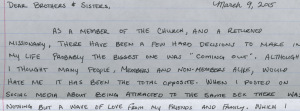 DEAR BROTHERS & SISTERS, MARCH 9, 2015
AS A MEMBER OF THE CHURCH, AND A RETURNED
MISSIONARY, THERE HAVE BEEN A FEW HARD DECISIONS TO MAKE IN
MY LIFE. PROBABLY THE BIGGEST ONE WAS "COMING OUT". ALTHOUGH
I THOUGHT MANY PEOPLE, MEMBERS AND NON-MEMBERS ALIKE, WOULD
HATE ME. IT HAS BEEN THE TOTAL OPPOSITE. WHEN I POSTED ON
SOCIAL MEDIA ABOUT BEING ATTRACTED TO THE SAME SEX THERE WAS
NOTHING BUT A WAVE OF LOVE FROM MY FRIENDS AND FAMILY. WHICH I